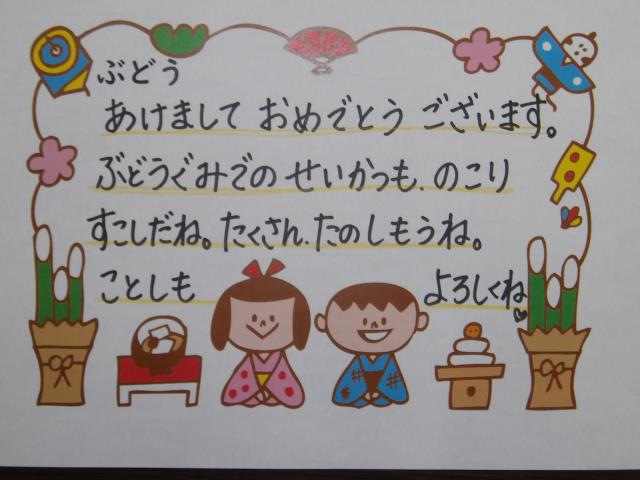 ぶどう
あけまして おめでとう ございます。
ぶどうぐみでの せいかつも、のこり
すこしだね。たくさん、たのしもうね。
ことしも よろしくね